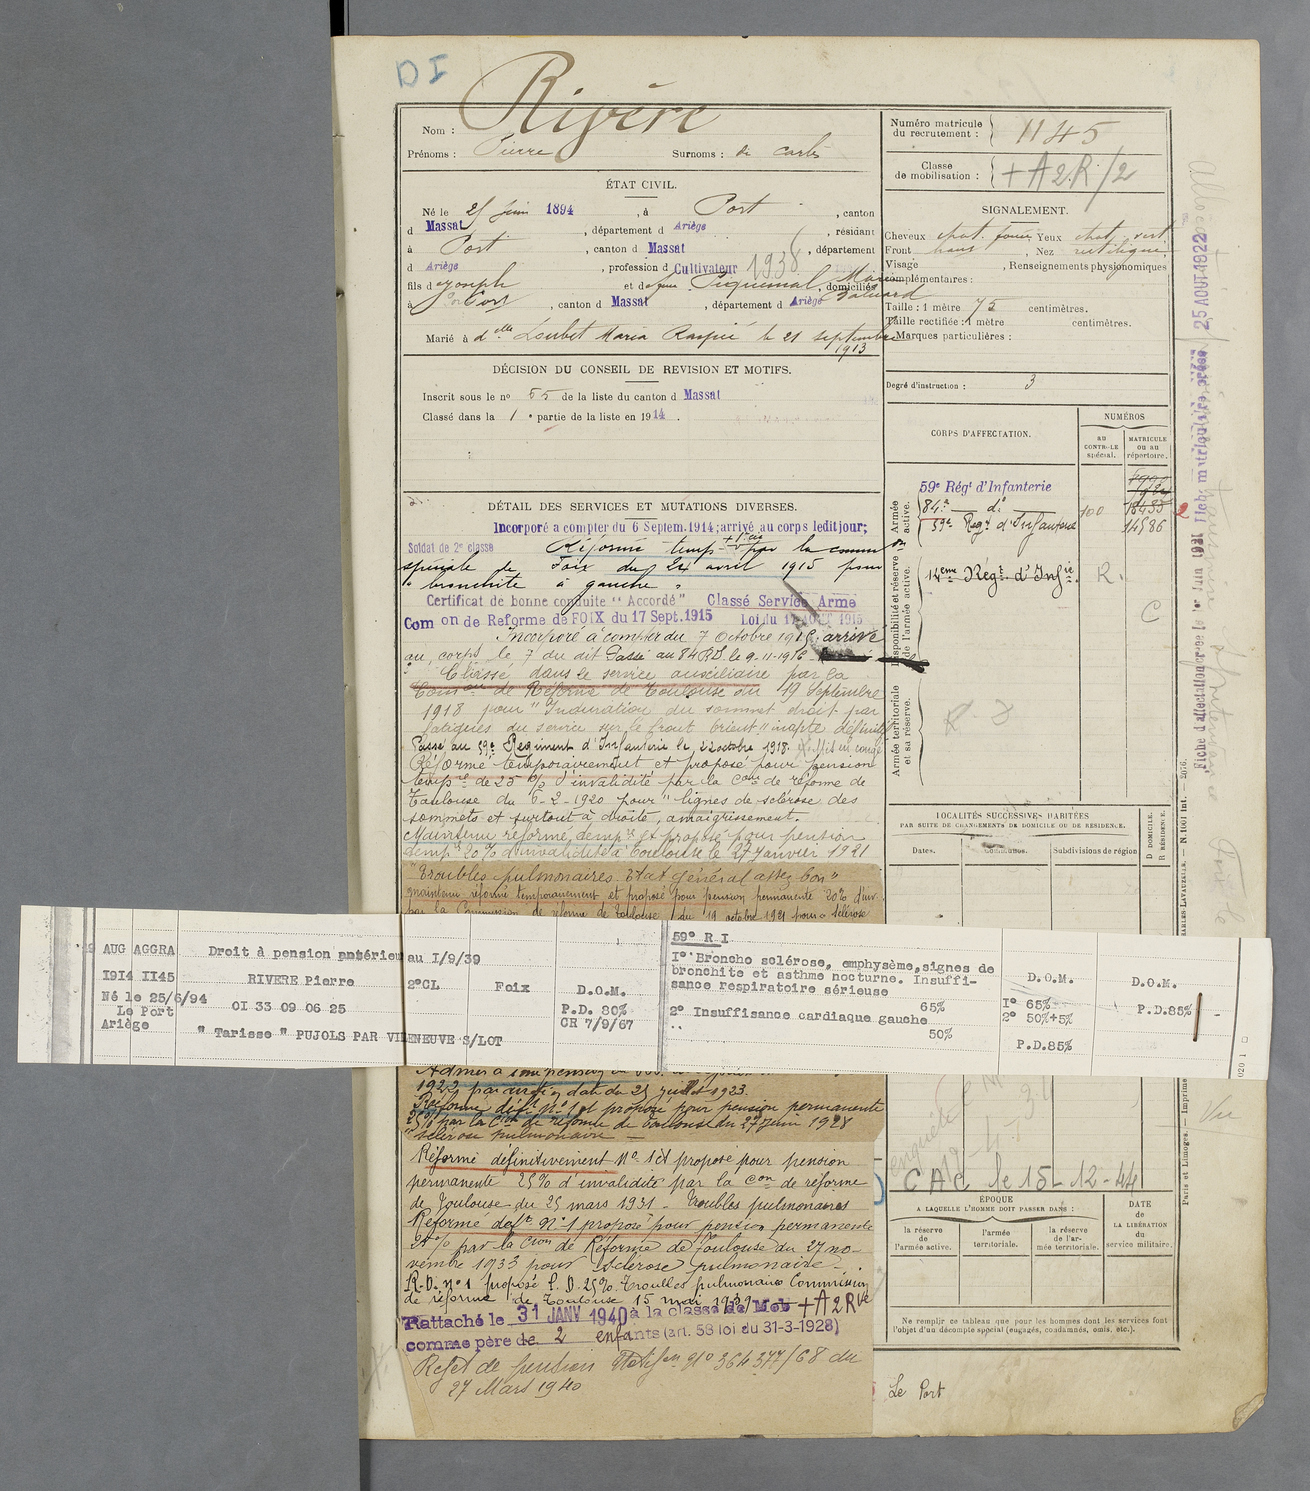 D I
Rivère
Nom :
Prénoms : Pierre Surnoms : de carles
ÉTAT CIVIL.
Né le 25 juin 1894, à Port, canton
d Massat, département d Ariège, résidant
à Port, canton d Massat, département
d Ariège, profession d Cultivateur 1938
fils d Joseph et de Piquemal Marie, domiciliés
à Port, canton d Massat, département d Ariège
Marié à d'elle Loubet Maria le 21 septembre
1913
DÉCISION DU CONSEIL DE REVISION ET MOTIFS.
Inscrit sous le no 55 de la liste du canton d Massat
Classé dans la 1e partie de la liste en 1914.
DÉTAIL DES SERVICES ET MUTATIONS DIVERSES.
Incorporé a compter du 6 Septem. 1914; arrivé au corps ledit jour;
Soldat de 2e classe Réformé tempre par la comm
spéciale de Foix du 24 avril 1915 pour
"bronchite à gauche"
Certificat de bonne conduite "Accordé" Classé Service Armé
Com on de Reforme de FOIX du 17 Sept. 1915 Loi du 17 AOUT 1915
Incorporé à compter du 7 Octobre arrivé
au corps le 7 du dit Passé au 84e RI. le 9-11-1916
Classé dans le service auxiliaire par la
Comon de Réforme de Toulouse du 19 Septembre
1918 pour "Induration du sommet droit par
fatigues du service sur le front Orient" inapte définitif
Passé au 59e Régiment d'Infanterie le 22 octobre 1918. Mis en congé
Réformé temporairement et proposé pour pension
tempre de 25 % d'invalidité par la Con de réforme de
Toulouse du 6-2-1920 pour "lignes de sclérose des
sommets et surtout à droite, amaigrissement.
Maintenu réformé tempre et proposé pour pension
temp. 20% d'invalidité à Toulouse le 27 janvier 1921
"Troubles pulmonaires Etat général assez bon"
maintenu réformé temporairement et proposé pour pension permanente 20% d'inv
par la Commission de réforme de Toulouse du 19 octobre 1921 pour sclérose
AUG AGGRA Droit à pension antérieu au I/9/39
I9I4 II45 RIVERE Pierre 2°CL Foix D.O.M.
Né le 25/6/94 OI 33 09 06 25 P.D. 80%
Le Port CR 7/9/67
Ariège " Tarisse " PUJOLS PAR VILENEUVE S/LOT
59° R I
I° Broncho sclérose, emphysème, signes de
bronchite et asthme nocturne. Insuffi-
sance respiratoire sérieuse
65%
2° Insuffisance cardiaque gauche
50%
D.O.M.
I° 65%
2° 50%+5%
P.D.85%
D.O.M.
P.D.85%
Admis à
1922 par du 25 juillet 1923.
Réformé déft No 1 et proposé pour pension permanente
25% par la Con de réforme de Toulouse du 27 juin 1928
"sclérose pulmonaire
Réformé définitivement No 1 et proposé pour pension
permanente 25% d'invalidité par la con de réforme
de Toulouse du 25 mars 1931 - Troubles pulmonaires
Réformé deft No 1 proposé pour pension permanente
25% par la Cion de Réforme de Toulouse du 27 no-
vembre 1933 pour sclérose pulmonaire.
R.D. No 1 proposé P.D. 25%. Troubles pulmonaires Commission
de réforme de Toulouse 15 mai 1939
Rattaché le 31 JANV 1940 à la classe de Mob + A 2 Rve
comme père de 2 enfants (art. 58 loi du 31-3-1928)
Rejet de pension No 364377/68 du
27 Mars 1940
Numéro matricule
du recrutement : 1145
Classe
de mobilisation : + A 2 R/2
SIGNALEMENT.
Cheveux chat. foncé Yeux chat. vert
Front haut, Nez rectiligne
Visage, Renseignements physionomiques
complémentaires :
Taille : 1 mètre 75 centimètres.
Taille rectifiée : 1 mètre centimètres.
Marques particulières :
Degré d'instruction : 3
CORPS D'AFFECTATION.
NUMÉROS
AU CONTROLE spécial.
MATRICULE ou au répertoire.
Armée active.
59e Régt d'Infanterie
84e do 100 18435
59e Régt d'Infanterie 14586
Disponibilité et réserve de l'armée active.
14eme Régt d'Infie. R.
C
Armée territoriale et sa réserve.
LOCALITÉS SUCCESSIVES HABITÉES
PAR SUITE DE CHANGEMENTS DE DOMICILE OU DE RÉSIDENCE.
Dates. Communes. Subdivisions de région
D DOMICILE.
R RÉSIDENCE.
enquête
Vu
CAC le 15-12-44
ÉPOQUE
A LAQUELLE L'HOMME DOIT PASSER DANS :
la réserve de l'armée active.
l'armée territoriale.
la réserve de l'armée territoriale.
DATE de LA LIBÉRATION du service militaire.
Ne remplir ce tableau que pour les hommes dont les services font
l'objet d'un décompte spécial (engagés, condamnés, omis, etc.).
Le Port
Fiche d'affectation créée le 1er Juin 1921 Fiche matriculaire créée 25 AOUT 1922
CHARLES LAVAUZELLE. — N. 1001 Int. — 2076.
Paris et Limoges. — Imprimerie